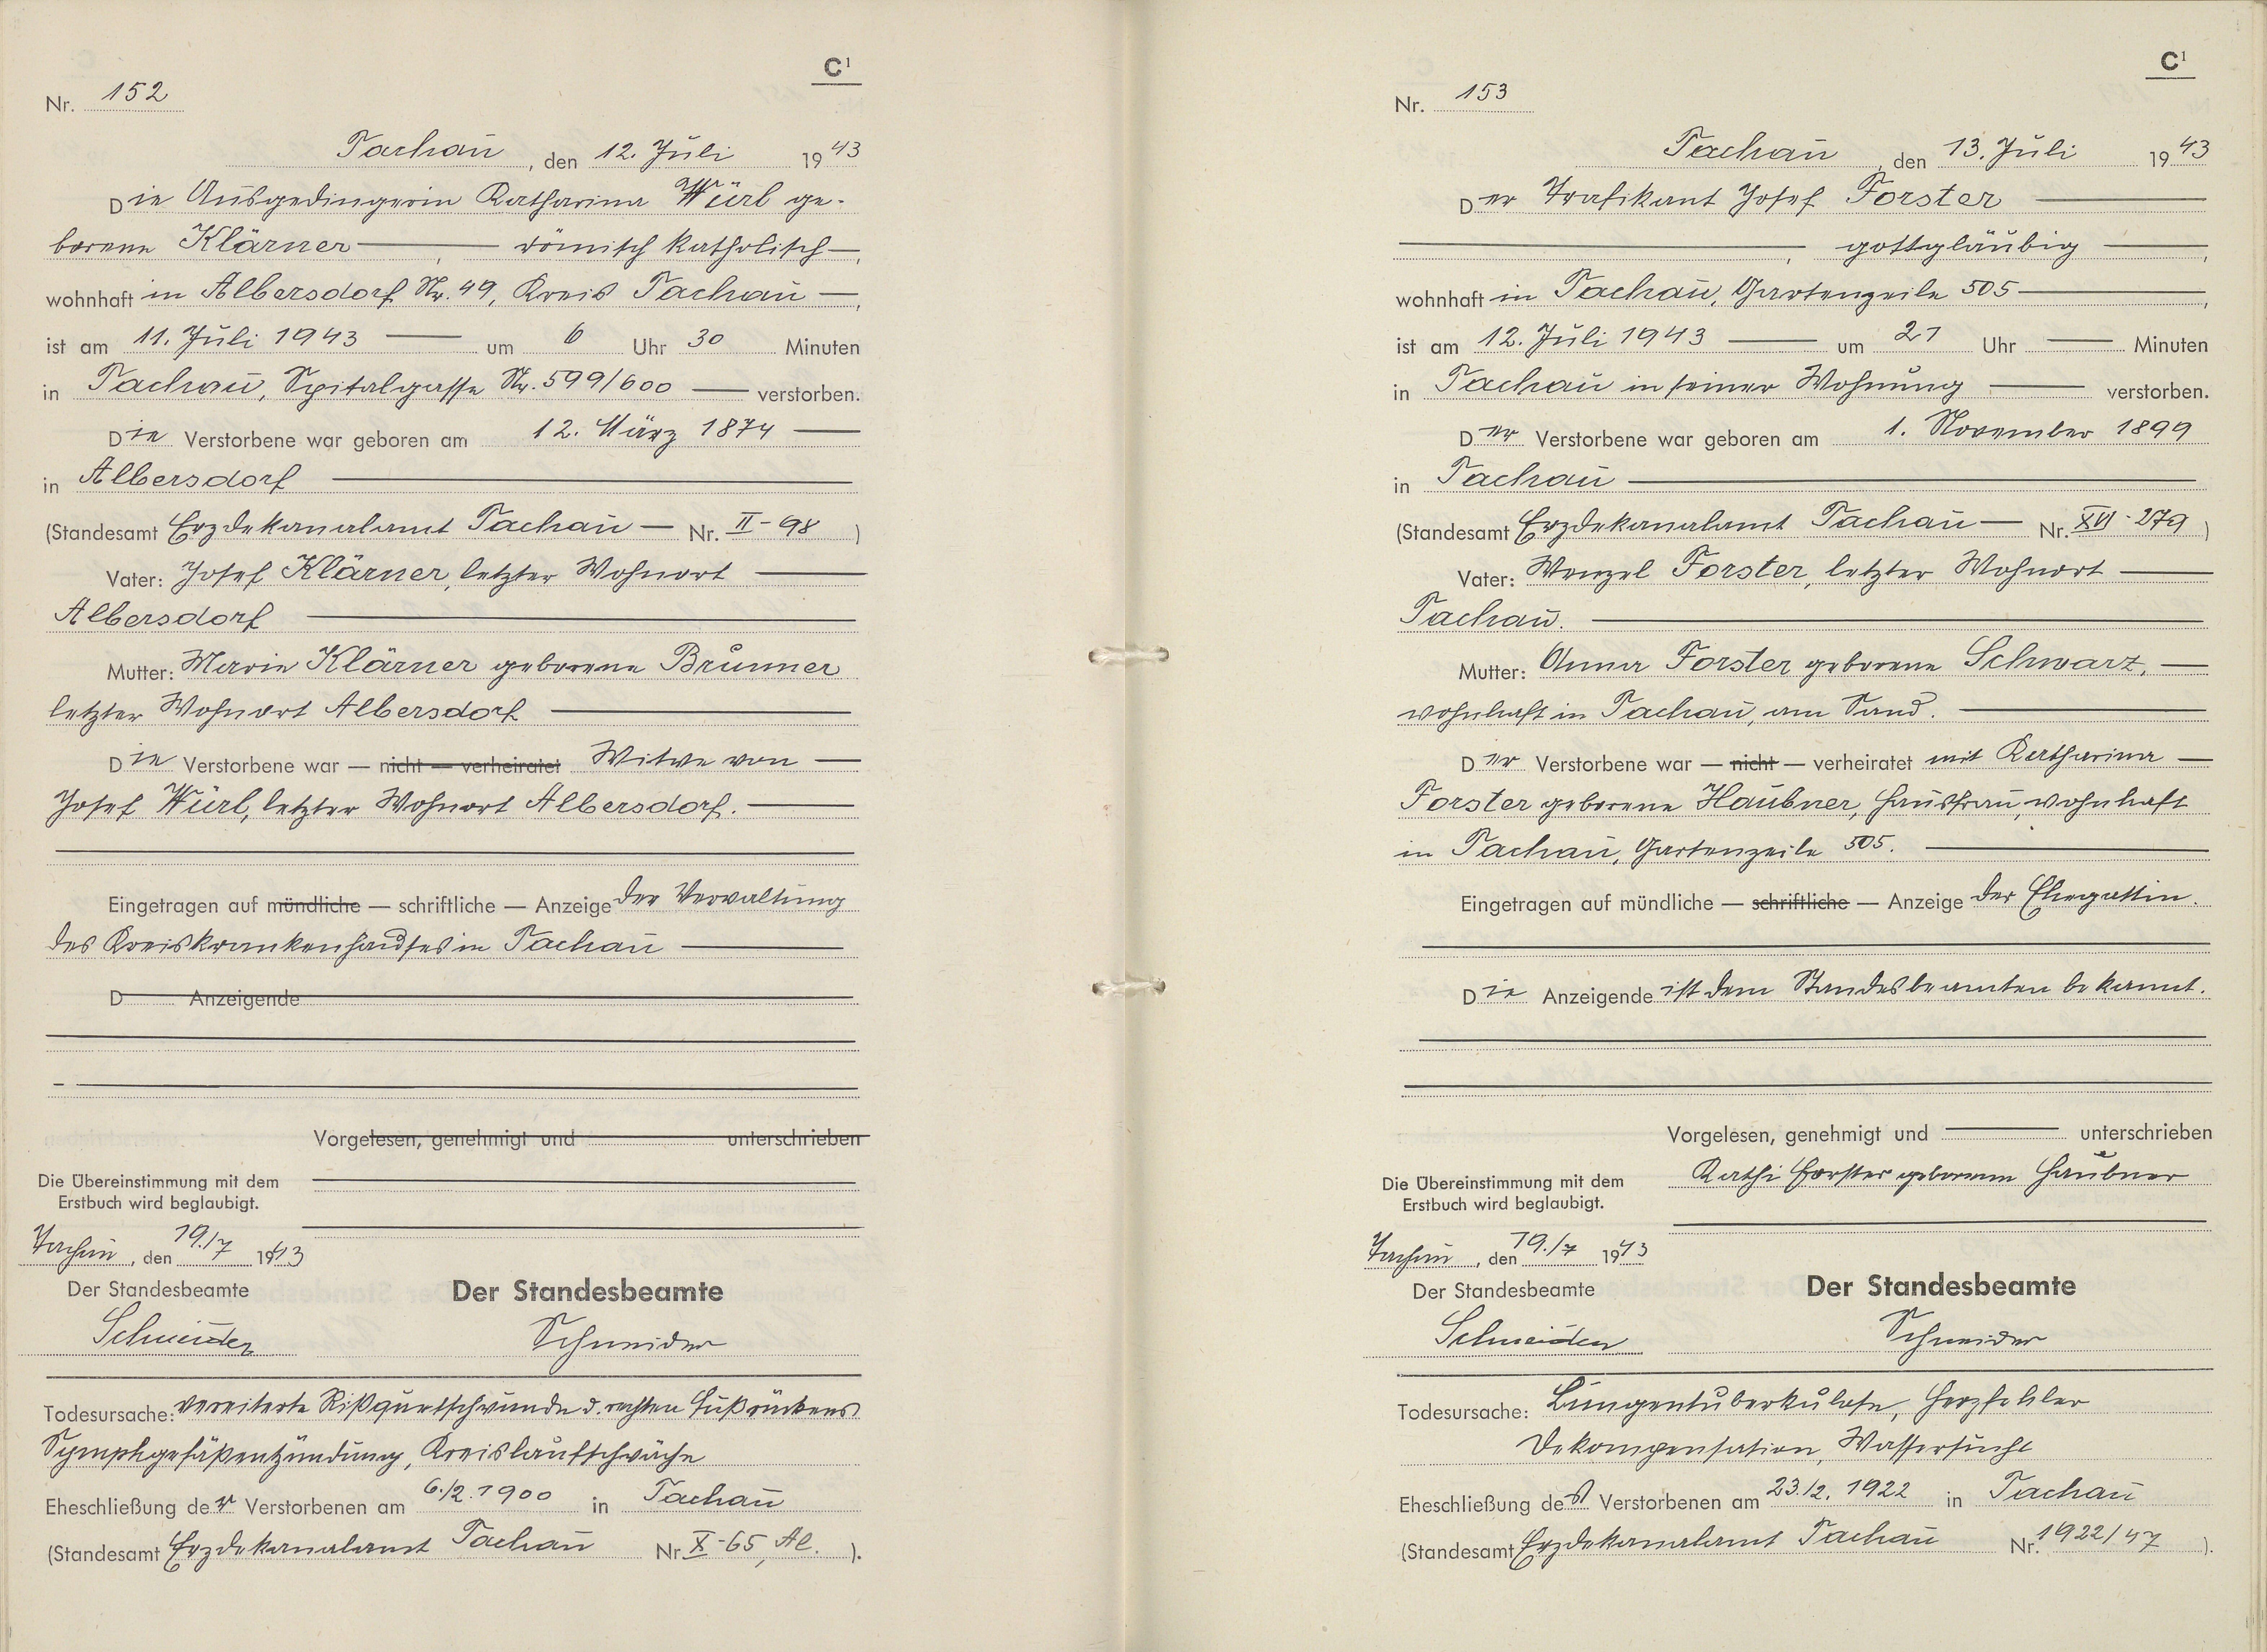 C¹
Nr. 152
Tachau, den 12. Juli 1943
Die Ausgedingerin Katharina Würl ge-
borene Klärner, römisch katholisch,
wohnhaft in Albersdorf Nr. 49, Kreis Tachau,
ist am 11. Juli 1943 um 6 Uhr 30 Minuten
in Tachau, Spitalgasse Nr. 599/600 verstorben.
Die Verstorbene war geboren am 12. März 1874
in Albersdorf
(Standesamt Erzdekanalamt Tachau Nr. II-98)
Vater: Josef Klärner, letzter Wohnort
Albersdorf
Mutter: Marie Klärner geborene Brunner
letzter Wohnort Albersdorf
Die Verstorbene war — nicht — verheiratet Witwe von
Josef Würl, letzter Wohnort Albersdorf.
Eingetragen auf mündliche — schriftliche — Anzeige der Verwaltung
des Kreiskrankenhauses in Tachau
D Anzeigende
Vorgelesen, genehmigt und unterschrieben
Die Übereinstimmung mit dem
Erstbuch wird beglaubigt.
Tachau, den 19./7 1943
Der Standesbeamte Der Standesbeamte
Schneider Schneider
Todesursache: Vereiterte Rißquetschwunde d. rechten Fußrückens
Lymphgefäßentzündung, Kreislaufschwäche
Eheschließung der Verstorbenen am 6./2. 1900 in Tachau
(Standesamt Erzdekanalamt Tachau Nr. X-65, Al.).
C¹
Nr. 153
Tachau, den 13. Juli 1943
Der Trafikant Josef Forster
, gottgläubig,
wohnhaft in Tachau, Gartenzeile 505,
ist am 12. Juli 1943 um 21 Uhr Minuten
in Tachau in seiner Wohnung verstorben.
Der Verstorbene war geboren am 1. November 1899
in Tachau
(Standesamt Erzdekanalamt Tachau Nr. XVI-279)
Vater: Wenzel Forster, letzter Wohnort
Tachau.
Mutter: Anna Forster geborene Schwarz,
wohnhaft in Tachau, am Sand.
Der Verstorbene war — nicht — verheiratet mit Katharina
Forster geborene Haubner, Hausfrau, wohnhaft
in Tachau, Gartenzeile 505.
Eingetragen auf mündliche — schriftliche — Anzeige der Ehegattin.
Die Anzeigende ist dem Standesbeamten bekannt.
Vorgelesen, genehmigt und unterschrieben
Kathi Forster geborene Haubner
Die Übereinstimmung mit dem
Erstbuch wird beglaubigt.
Tachau, den 19./7 1943
Der Standesbeamte Der Standesbeamte
Schneider Schneider
Todesursache: Lungentuberkulose, Herzfehler
Dekompensation, Wassersucht
Eheschließung des Verstorbenen am 23./2. 1922 in Tachau
(Standesamt Erzdekanalamt Tachau Nr. 1922/47).